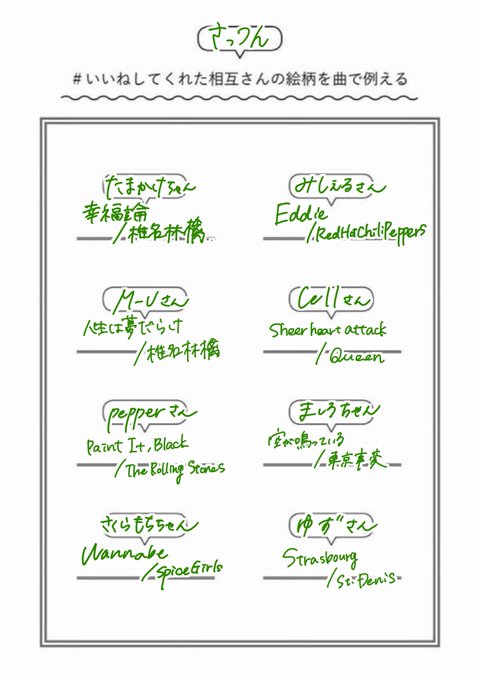 さっつん
#いいねしてくれた相互さんの絵柄を曲で例える
たまかけちゃん
幸福論
/椎名林檎
みしぇるさん
Eddie
/RedHotChiliPeppers
M-Uさん
人生は夢だらけ
/椎名林檎
Cellさん
Sheer heart attack
/Queen
pepperさん
Paint It, Black
/The Rolling Stones
ましろちゃん
空が鳴っている
/東京事変
さくらもちちゃん
Wannabe
/SpiceGirls
ゆずさん
Strasbourg
/St.Denis